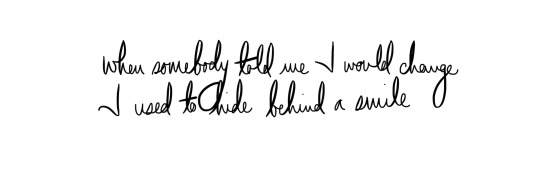 when somebody told me I would change
I used to hide behind a smile